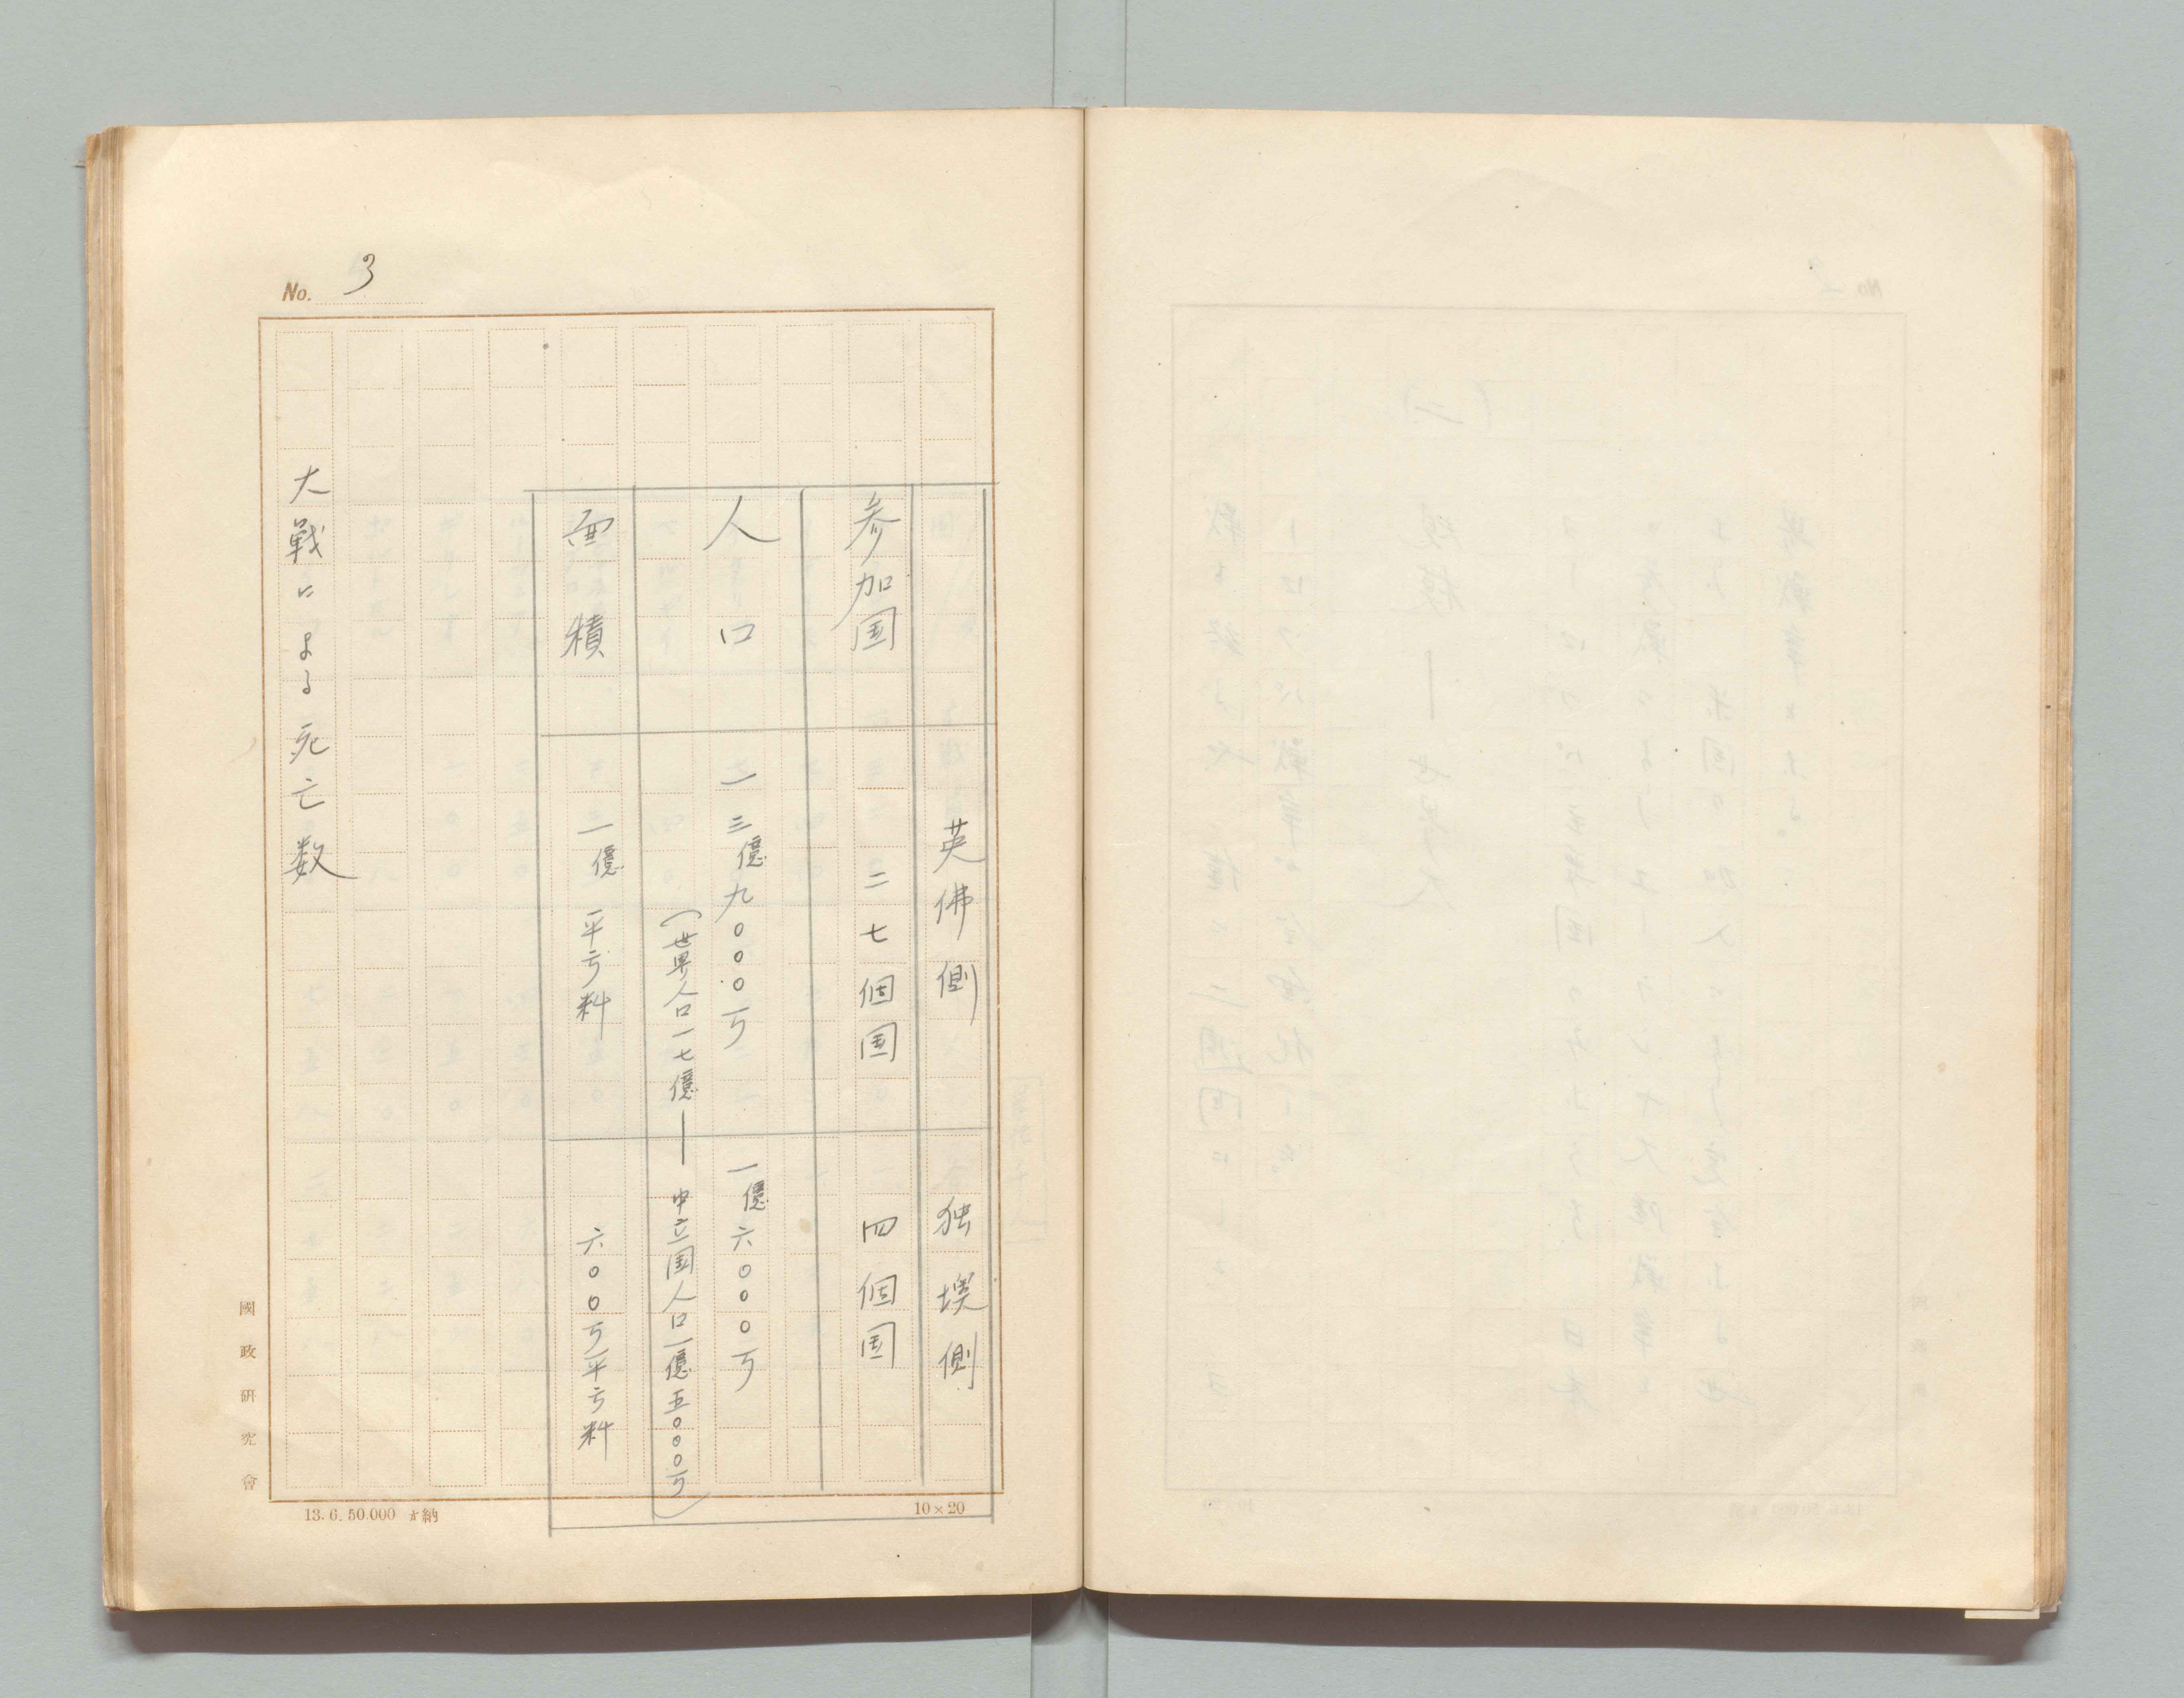 No. 3
英佛側 独墺側
参加国 二七個国 四個国
人口 一三億九〇〇〇万 一億六〇〇〇万
(世界人口一七億―中立国人口一億五〇〇〇万)
面積 一億平方粁 六〇〇万平方粁
大戦による死亡数
國政研究會
13.6.50.000 納
10×20